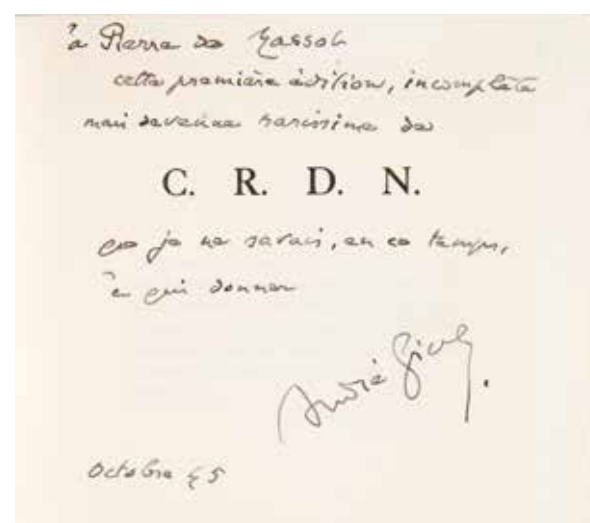 à Pierre de Massot
cette première édition, incomplète
mais devenue rarissime de
C. R. D. N.
que je ne savais, en ce temps,
à qui donner
André Gide.
Octobre 45